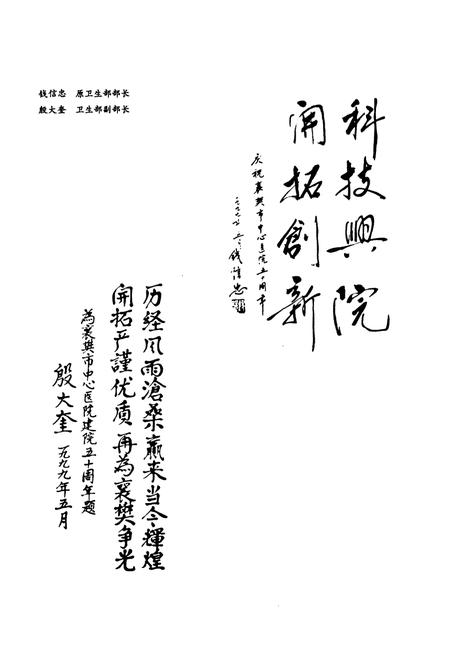 钱信忠　原卫生部部长
殷大奎　卫生部副部长
科技興院
開拓創新
庆祝襄樊市中心医院五十周年
钱信忠
历经风雨滄桑贏来当今輝煌
開拓严謹优质再為襄樊争光
為襄樊市中心医院建院五十周年题
殷大奎 一九九九年五月